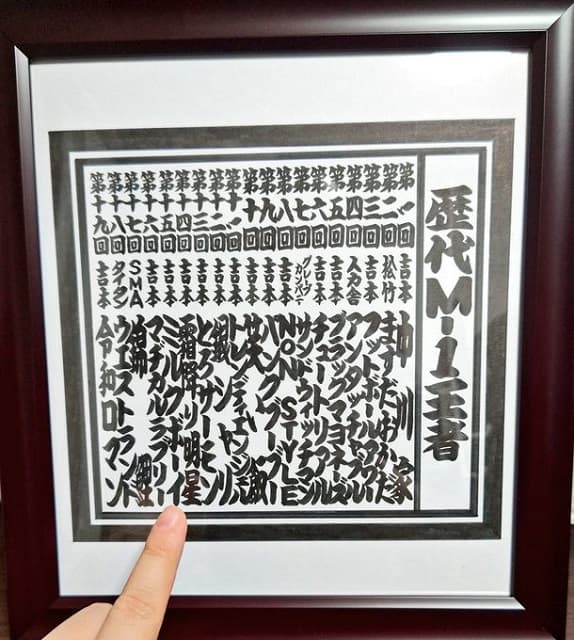 歴代M-1王者
第一回 吉本 中川家
第二回 松竹 ますだおかだ
第三回 吉本 フットボールアワー
第四回 人力舎 アンタッチャブル
第五回 吉本 ブラックマヨネーズ
第六回 吉本 チュートリアル
第七回 グレープカンパニー サンドウィッチマン
第八回 吉本 NON STYLE
第九回 吉本 パンクブーブー
第十回 吉本 笑い飯
第十一回 吉本 トレンディエンジェル
第十二回 吉本 銀シャリ
第十三回 吉本 とろサーモン
第十四回 吉本 霜降り明星
第十五回 吉本 ミルクボーイ
第十六回 吉本 マヂカルラブリー
第十七回 SMA 錦鯉
第十八回 タイタン ウエストランド
第十九回 吉本 令和ロマン